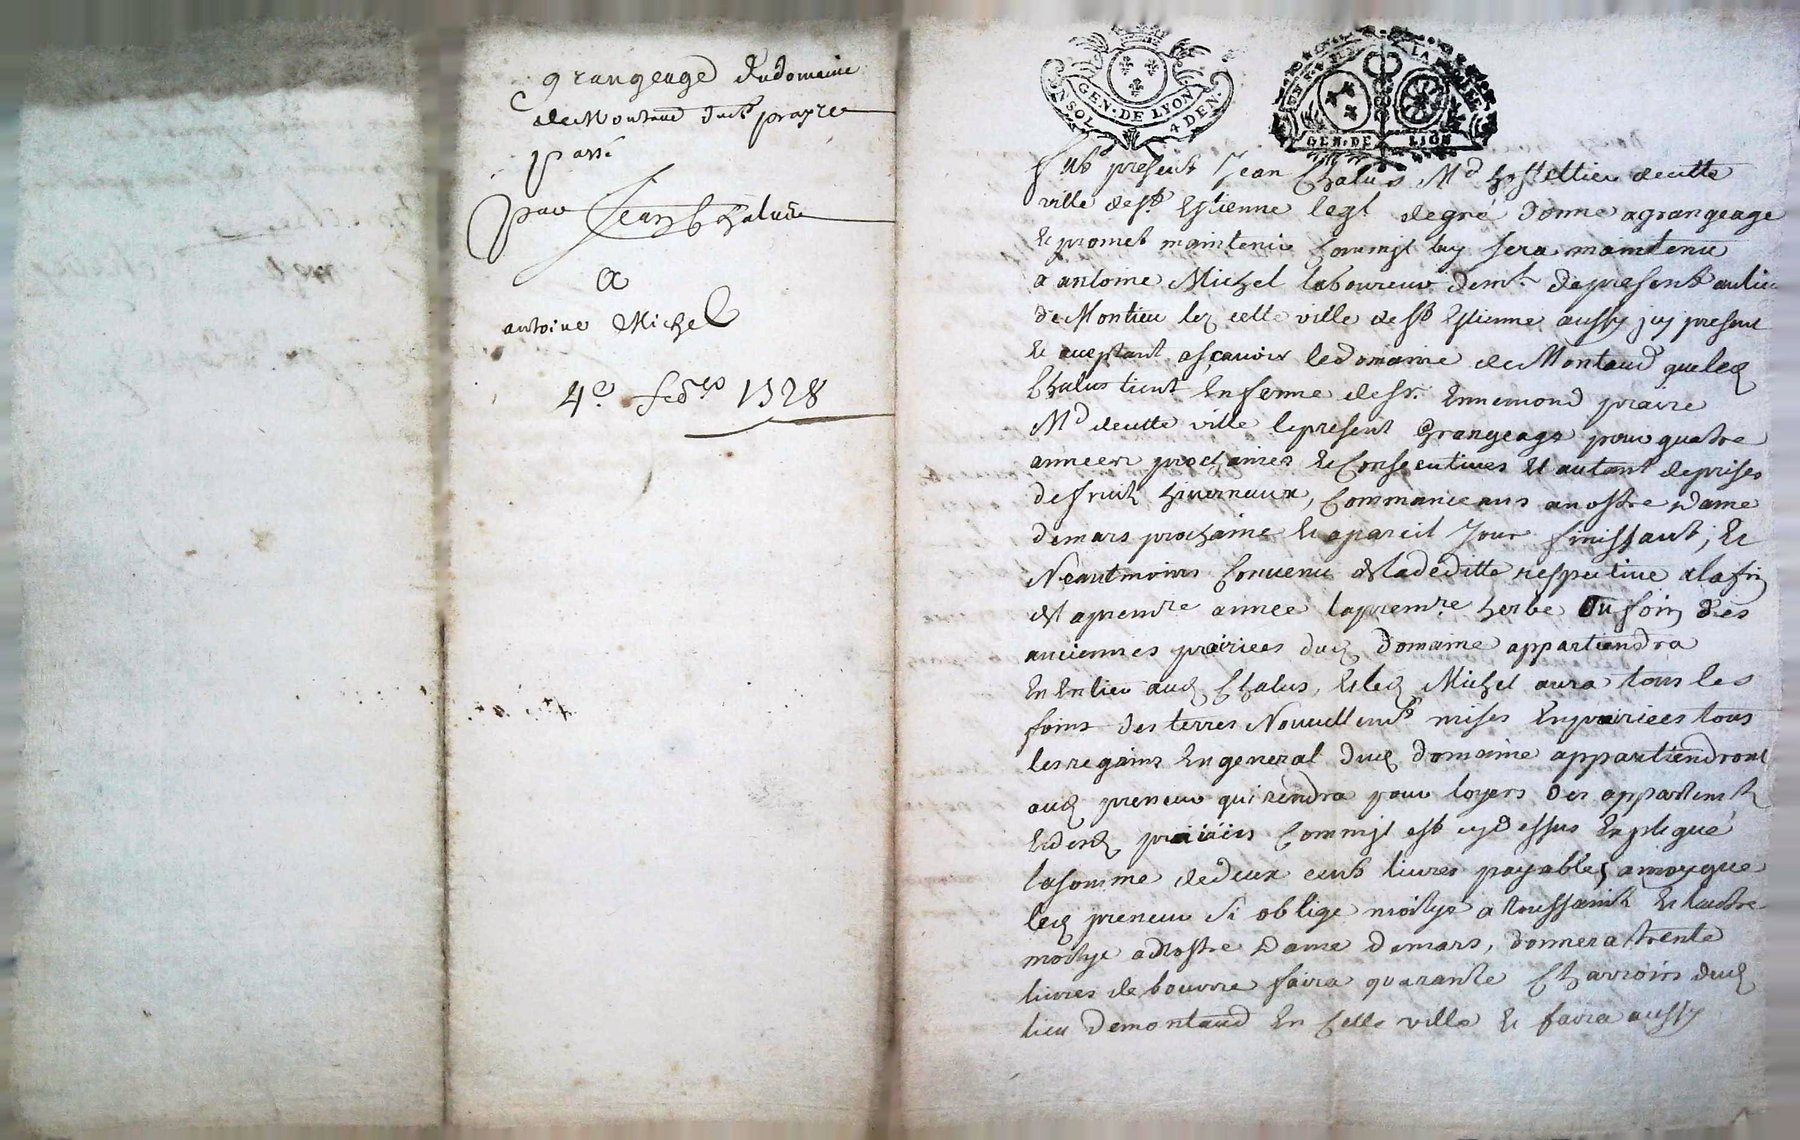 grangeage dudomaine
de Montaud du sr prayre
passé
par Jean Chalus
a
antoine Michel
4e febvro 1728
GEN. DE LYON
4 DEN.
GEN. DE LION
fut present Jean Chalus Md hostellier de cette
ville de st Estienne leql de gré donne a grangeage
Et promet maintenir Comme jl luy sera maintenu
a antoine Michel laboureur demt depresent au lieu
de Montieu lez cette ville de st Estienne aussy jcy present
Et aceptant, asçavoir le domaine de Montaud que led
Chalus tient En ferme de sr Ennemond praire
Md de cette ville le present Grangeage pour quatre
années prochaines Et Consecutives Et autant de prises
de fruits hiverneux, Commancans a nostre Dame
de mars prochaine Et a pareil Jour finissant, Et
Neantmoins Convenu respective a la fin
premre annee la premre herbe Du foin Des
anciennes prairies dud Domaine appartiendra
En Entier aud Chalus, Et led Michel aura tous les
foins des terres Nouvellemt mises En prairiees tous
les regains En general dud Domaine appartiendront
aud preneur qui rendra pour loyers Des appartemts
Et desd prairies Comme jl est cy dessus Explique
la somme de deux cents livres payables, a moy que
led preneur si oblige moitye a toussaints Et l'autre
moitye a Nostre Dame de mars, donnera trente
livres de bourre faira quarante Charrois dud
lieu de montaud En Cette ville Et faira aussy